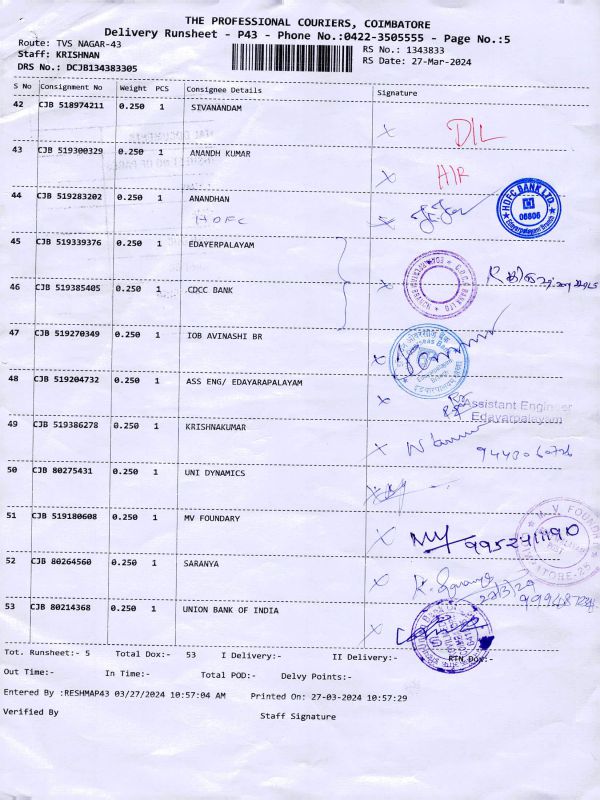 THE PROFESSIONAL COURIERS, COIMBATORE
Delivery Runsheet - P43 - Phone No.:0422-3505555 - Page No.:5
Route: TVS NAGAR-43 RS No.: 1343833
Staff: KRISHNAN RS Date: 27-Mar-2024
DRS No.: DCJB134383305
S No Consignment No Weight PCS Consignee Details Signature
42 CJB 518974211 0.250 1 SIVANANDAM D/L
43 CJB 519300329 0.250 1 ANANDH KUMAR
44 CJB 519283202 0.250 1 ANANDHAN
HDFC
HDFC BANK LTD.
06806
Edayarpalayam Branch
45 CJB 519339376 0.250 1 EDAYERPALAYAM
46 CJB 519385405 0.250 1 CDCC BANK
47 CJB 519270349 0.250 1 IOB AVINASHI BR
48 CJB 519204732 0.250 1 ASS ENG/ EDAYARAPALAYAM
Assistant Engineer
Edayarpalayam
49 CJB 519386278 0.250 1 KRISHNAKUMAR
50 CJB 80275431 0.250 1 UNI DYNAMICS
51 CJB 519180608 0.250 1 MV FOUNDARY
52 CJB 80264560 0.250 1 SARANYA
27/3/24
53 CJB 80214368 0.250 1 UNION BANK OF INDIA
Tot. Runsheet:- 5 Total Dox:- 53 I Delivery:- II Delivery:- RTN Dox:-
Out Time:- In Time:- Total POD:- Delvy Points:-
Entered By :RESHMAP43 03/27/2024 10:57:04 AM Printed On: 27-03-2024 10:57:29
Verified By Staff Signature